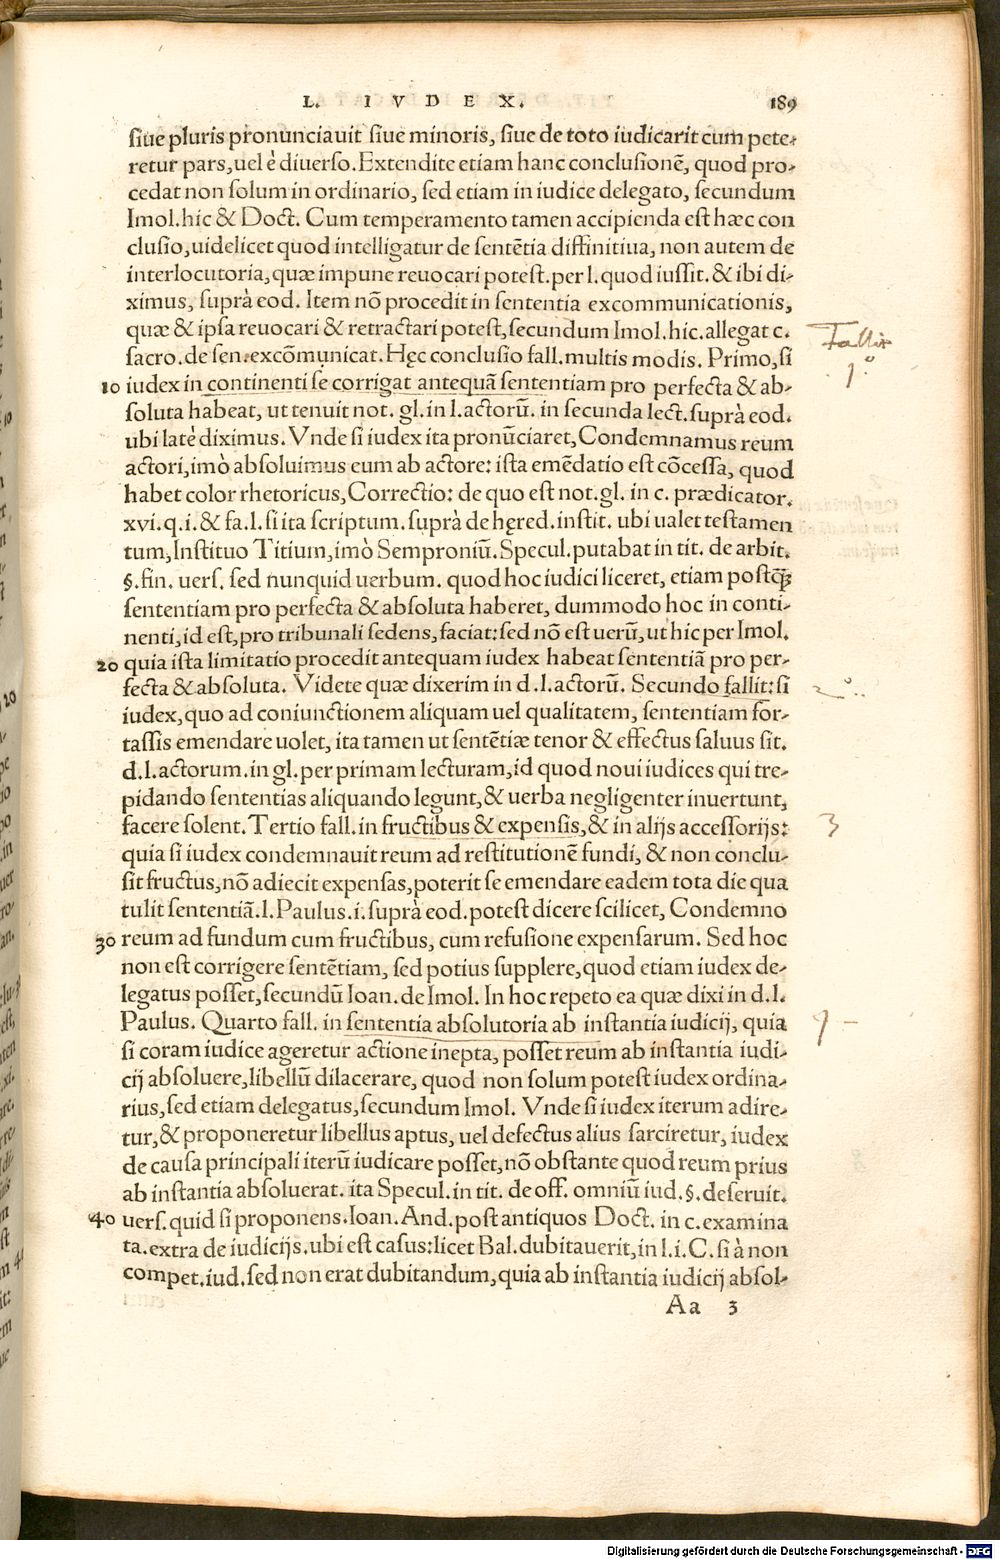 L. IVDEX. 189
siue pluris pronunciauit siue minoris, siue de toto iudicarit cum pete-
retur pars, uel è diuerso. Extendite etiam hanc conclusionē, quod pro-
cedat non solum in ordinario, sed etiam in iudice delegato, secundum
Imol. hic & Doct. Cum temperamento tamen accipienda est hæc con
clusio, uidelicet quod intelligatur de sentētia diffinitiua, non autem de
interlocutoria, quæ impune reuocari potest. per l. quod iussit. & ibi di-
ximus, suprà eod. Item nō procedit in sententia excommunicationis,
quæ & ipsa reuocari & retractari potest, secundum Imol. hic. allegat c.
sacro. de sen. excōmunicat. Hęc conclusio fall. multis modis. Primo, si
Fallit
1.º
10 iudex in continenti se corrigat antequā sententiam pro perfecta & ab-
soluta habeat, ut tenuit not. gl. in l. actorū. in secunda lect. suprà eod.
ubi latè diximus. Vnde si iudex ita pronūciaret, Condemnamus reum
actori, imò absoluimus eum ab actore: ista emēdatio est cōcessa, quod
habet color rhetoricus, Correctio: de quo est not. gl. in c. prædicator.
xvi. q. i. & fa. l. si ita scriptum. suprà de hęred. instit. ubi ualet testamen
tum, Instituo Titium, imò Semproniū. Specul. putabat in tit. de arbit.
§. fin. uers. sed nunquid uerbum. quod hoc iudici liceret, etiam postꝗ̃
sententiam pro perfecta & absoluta haberet, dummodo hoc in conti-
nenti, id est, pro tribunali sedens, faciat: sed nō est uerū, ut hic per Imol.
20 quia ista limitatio procedit antequam iudex habeat sententiā pro per-
fecta & absoluta. Videte quæ dixerim in d. l. actorū. Secundo fallit: si
2º..
iudex, quo ad coniunctionem aliquam uel qualitatem, sententiam for-
tassis emendare uolet, ita tamen ut sentētiæ tenor & effectus saluus sit.
d. l. actorum. in gl. per primam lecturam, id quod noui iudices qui tre-
pidando sententias aliquando legunt, & uerba negligenter inuertunt,
facere solent. Tertio fall. in fructibus & expensis, & in alijs accessorijs:
3
quia si iudex condemnauit reum ad restitutionē fundi, & non conclu-
sit fructus, nō adiecit expensas, poterit se emendare eadem tota die qua
tulit sententiā. l. Paulus. i. suprà eod. potest dicere scilicet, Condemno
30 reum ad fundum cum fructibus, cum refusione expensarum. Sed hoc
non est corrigere sentētiam, sed potius supplere, quod etiam iudex de-
legatus posset, secundū Ioan. de Imol. In hoc repeto ea quæ dixi in d. l.
Paulus. Quarto fall. in sententia absolutoria ab instantia iudicij, quia
si coram iudice ageretur actione inepta, posset reum ab instantia iudi-
cij absoluere, libellū dilacerare, quod non solum potest iudex ordina-
rius, sed etiam delegatus, secundum Imol. Vnde si iudex iterum adire-
tur, & proponeretur libellus aptus, uel defectus alius sarciretur, iudex
de causa principali iterū iudicare posset, nō obstante quod reum prius
ab instantia absoluerat. ita Specul. in tit. de off. omniū iud. §. deseruit.
40 uers. quid si proponens. Ioan. And. post antiquos Doct. in c. examina
ta. extra de iudicijs. ubi est casus: licet Bal. dubitauerit, in l. i. C. si à non
compet. iud. sed non erat dubitandum, quia ab instantia iudicij absol-
Aa 3
Digitalisierung gefördert durch die Deutsche Forschungsgemeinschaft - DFG